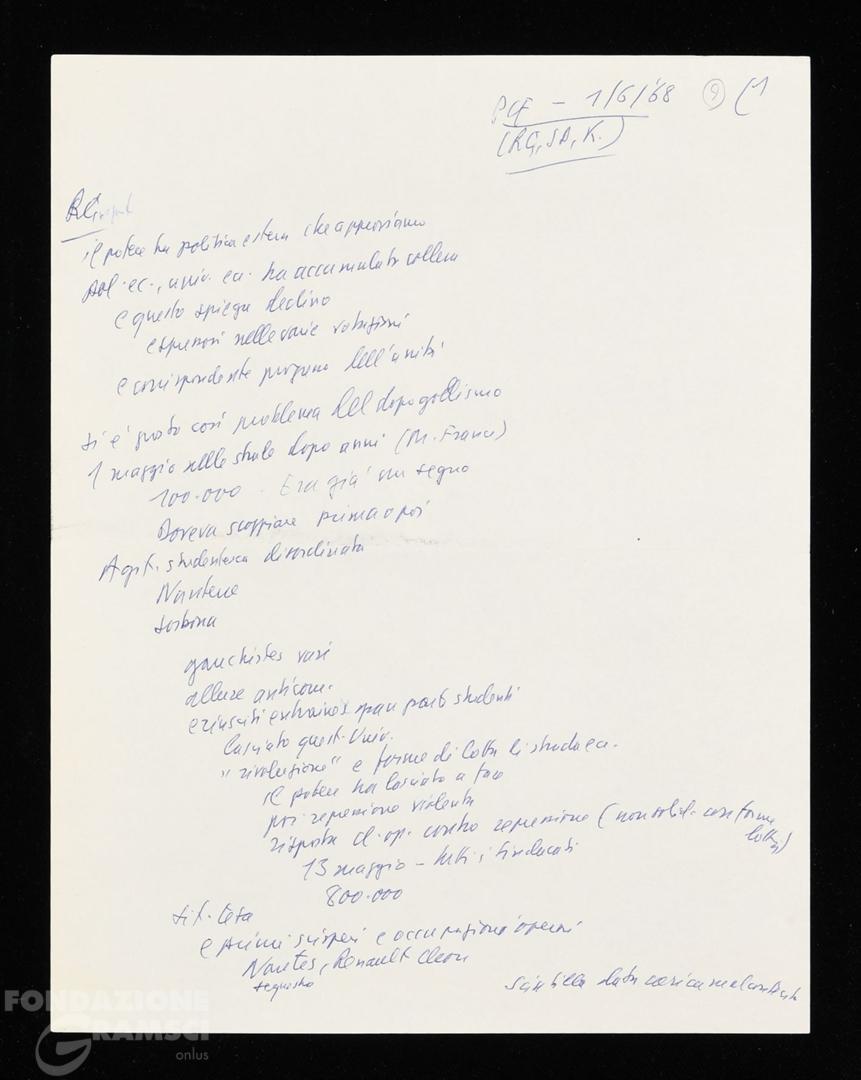 PCF - 1/6/'68 (9) (1
(RG, SA, K.)
RG
il potere ha politica estera che approviamo
pol. ec., univ. ecc. ha accumulato collera
e questo spiega declino
espressosi nelle varie votazioni
e corrispondente progresso dell'unità
si è posto così problema del dopogollismo
1 maggio nelle strade dopo anni (M. France)
100.000. Era già un segno
Doveva scoppiare prima o poi
Agit. studentesca disordinata
Nanterre
Sorbona
gauchistes vari
allure anticom.
e riusciti entrainer gran parte studenti
lasciato quest. Univ.
"rivoluzione" e forme di lotta di strada ecc.
il potere ha lasciato a fare
poi repressione violenta
risposta cl. op. contro repressione (non solid. con forme
lotta)
13 maggio - tutti i sindacati
800.000
sit. tesa
e primi scioperi e occupazioni operai
Nantes, Renault Cleon
sequestro
scintilla data carica malcontento
FONDAZIONE
GRAMSCI
onlus